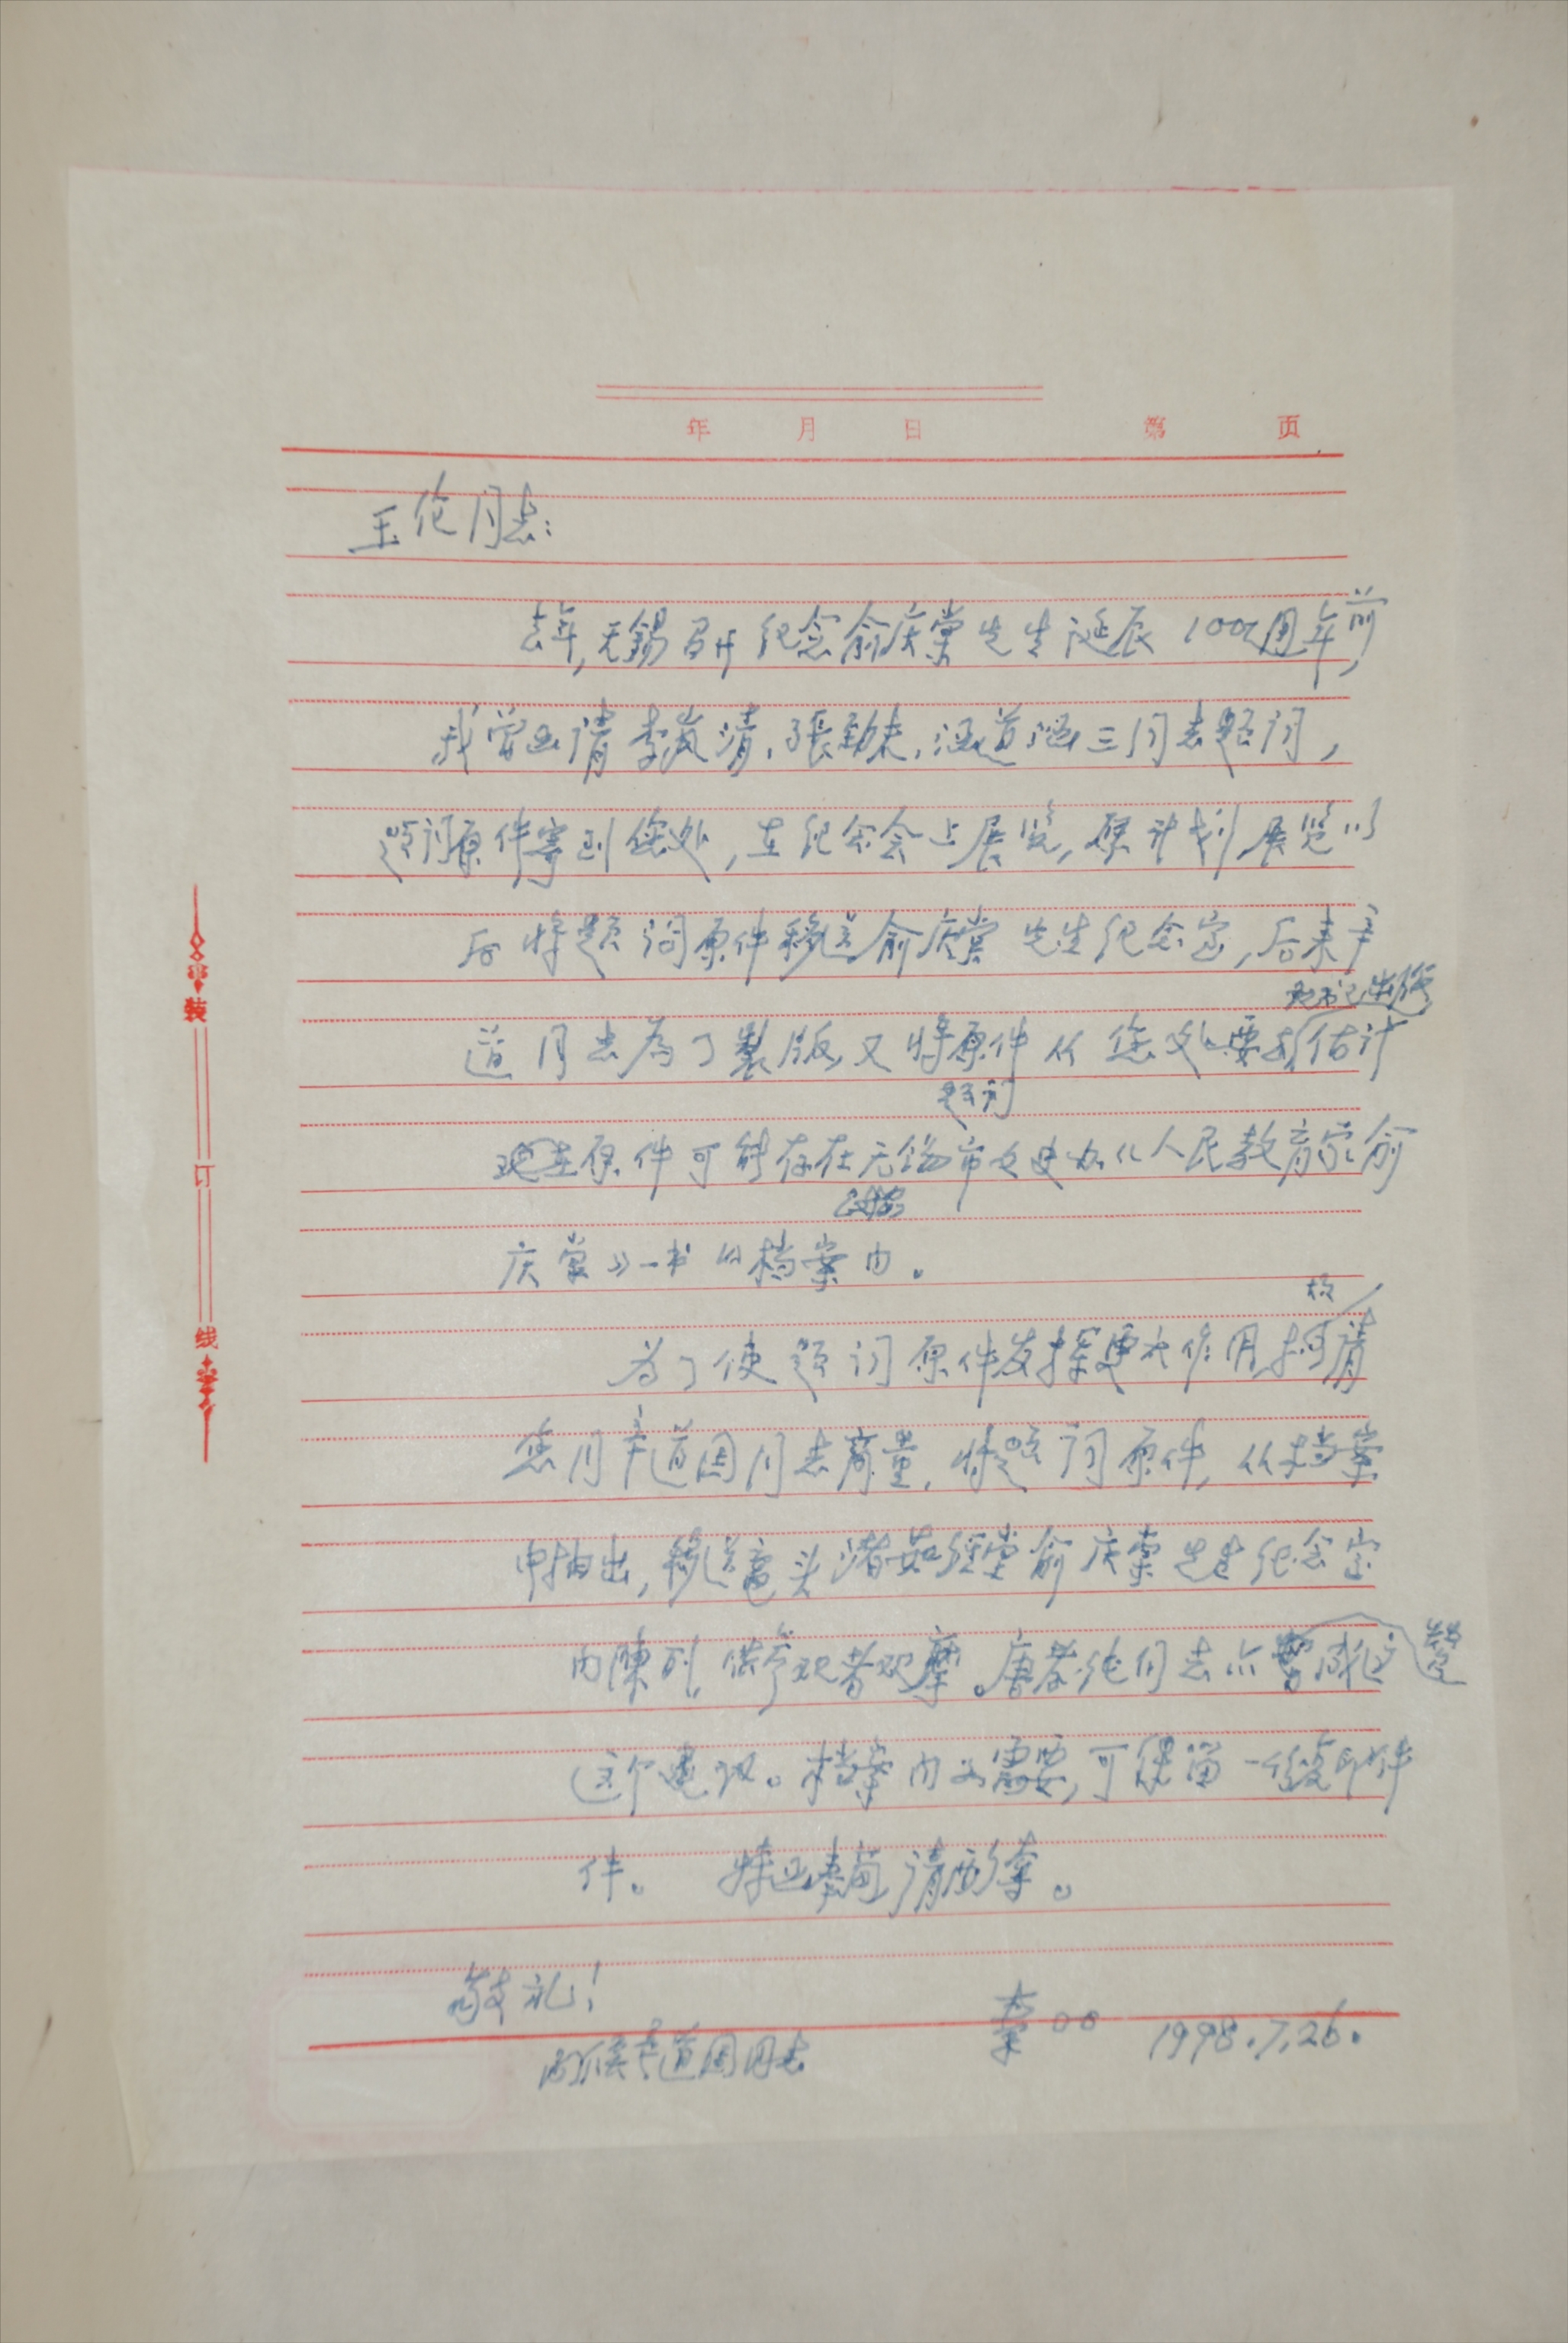 年 月 日 第 页
玉伦同志：
去年，无锡召开纪念俞庆棠先生诞辰100周年前，
我曾函请李岚清、张劲夫、汪道涵三同志题词，
题词原件寄到您处，在纪念会上展览，原计划展览以
后将题词原件移送俞庆棠先生纪念室，后来辛
现书已出版
道同志为了製版又将原件从您处要去估计
题词
现在原件可能存在无锡市文史办《人民教育家俞
政协
庆棠》一书的档案内。
故
为了使题词原件发挥更大作用，请
您同辛道因同志商量，将题词原件，从档案
中抽出，移送鼋头渚茹经堂俞庆棠先生纪念室
内陈列，供参观者观摩。唐孝纯同志亦 赞成
这个建议。档案内如需要，可保留一份复印件
件。 特此奉商 请酌夺。
敬礼！
李○○ 1998.7.26.
同候辛道因同志
装
订
线